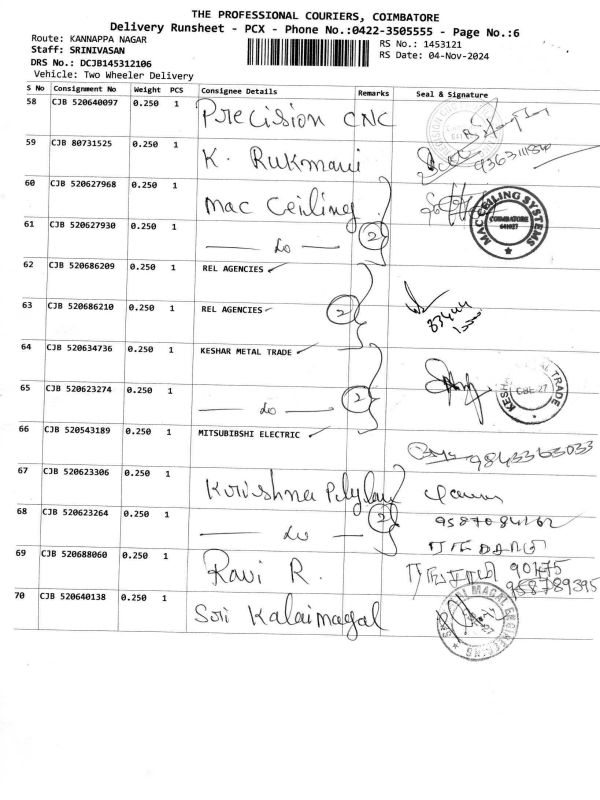 THE PROFESSIONAL COURIERS, COIMBATORE
Delivery Runsheet - PCX - Phone No.:0422-3505555 - Page No.:6
Route: KANNAPPA NAGAR
RS No.: 1453121
Staff: SRINIVASAN
RS Date: 04-Nov-2024
DRS No.: DCJB145312106
Vehicle: Two Wheeler Delivery
S No Consignment No Weight PCS Consignee Details Remarks Seal & Signature
58 CJB 520640097 0.250 1 Precision CNC
59 CJB 80731525 0.250 1 K. Rukmani
60 CJB 520627968 0.250 1 Mac Ceiling
MAC CEILING SYSTEMS
COIMBATORE
641027
61 CJB 520627930 0.250 1 — do — 2
62 CJB 520686209 0.250 1 REL AGENCIES
63 CJB 520686210 0.250 1 REL AGENCIES 2
64 CJB 520634736 0.250 1 KESHAR METAL TRADE
CBE-27
65 CJB 520623274 0.250 1 — do — 2
66 CJB 520543189 0.250 1 MITSUBIBSHI ELECTRIC 9843363033
67 CJB 520623306 0.250 1 Krishna
68 CJB 520623264 0.250 1 — do — 2
69 CJB 520688060 0.250 1 Ravi R. 90175
958789395
70 CJB 520640138 0.250 1 Sri Kalaimagal